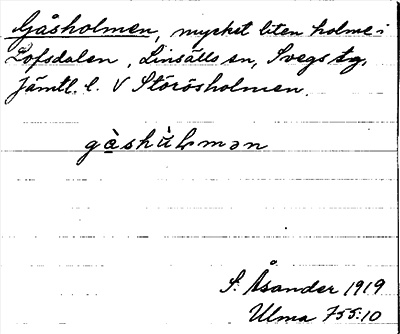 Gåsholmen, mycket liten holme i
Lofsdalen, Linsälls sn, Svegs tg,
Jämtl. l. V Störösholmen.
gàshùlmən
S. Åsander 1919
Ulma 755:10